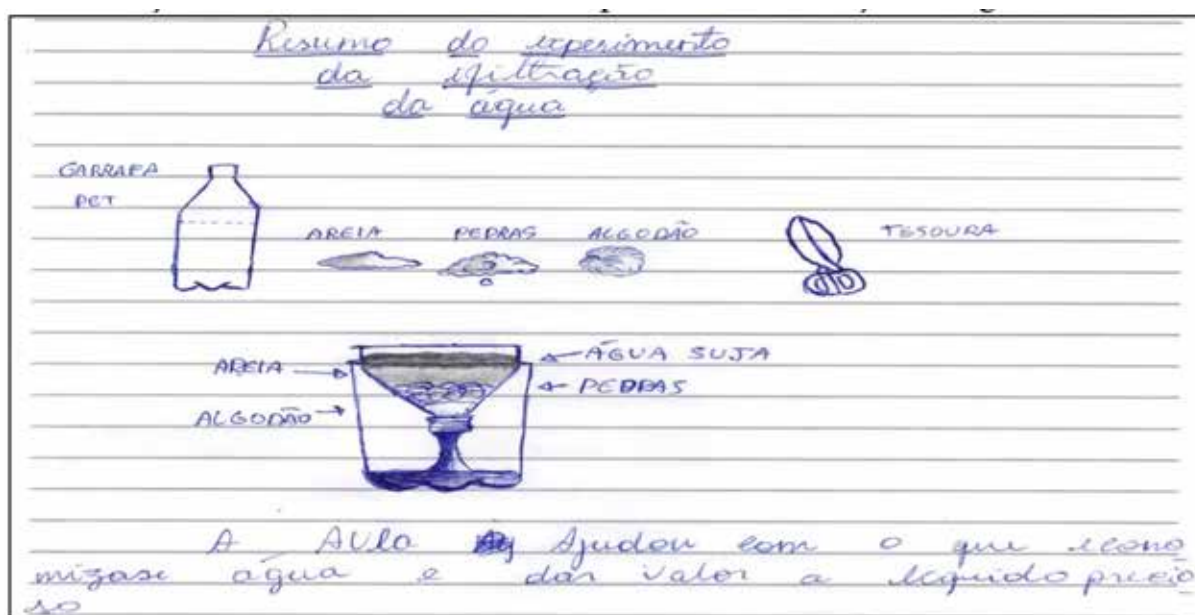 Resumo do experimento
da efiltração
da água
GARRAFA
PET
AREIA PEDRAS ALGODÃO TESOURA
AREIA ÁGUA SUJA
ALGODÃO PEDRAS
A AULA Ajudou com o que econo
mizase água e dar valor a liquido precio
so